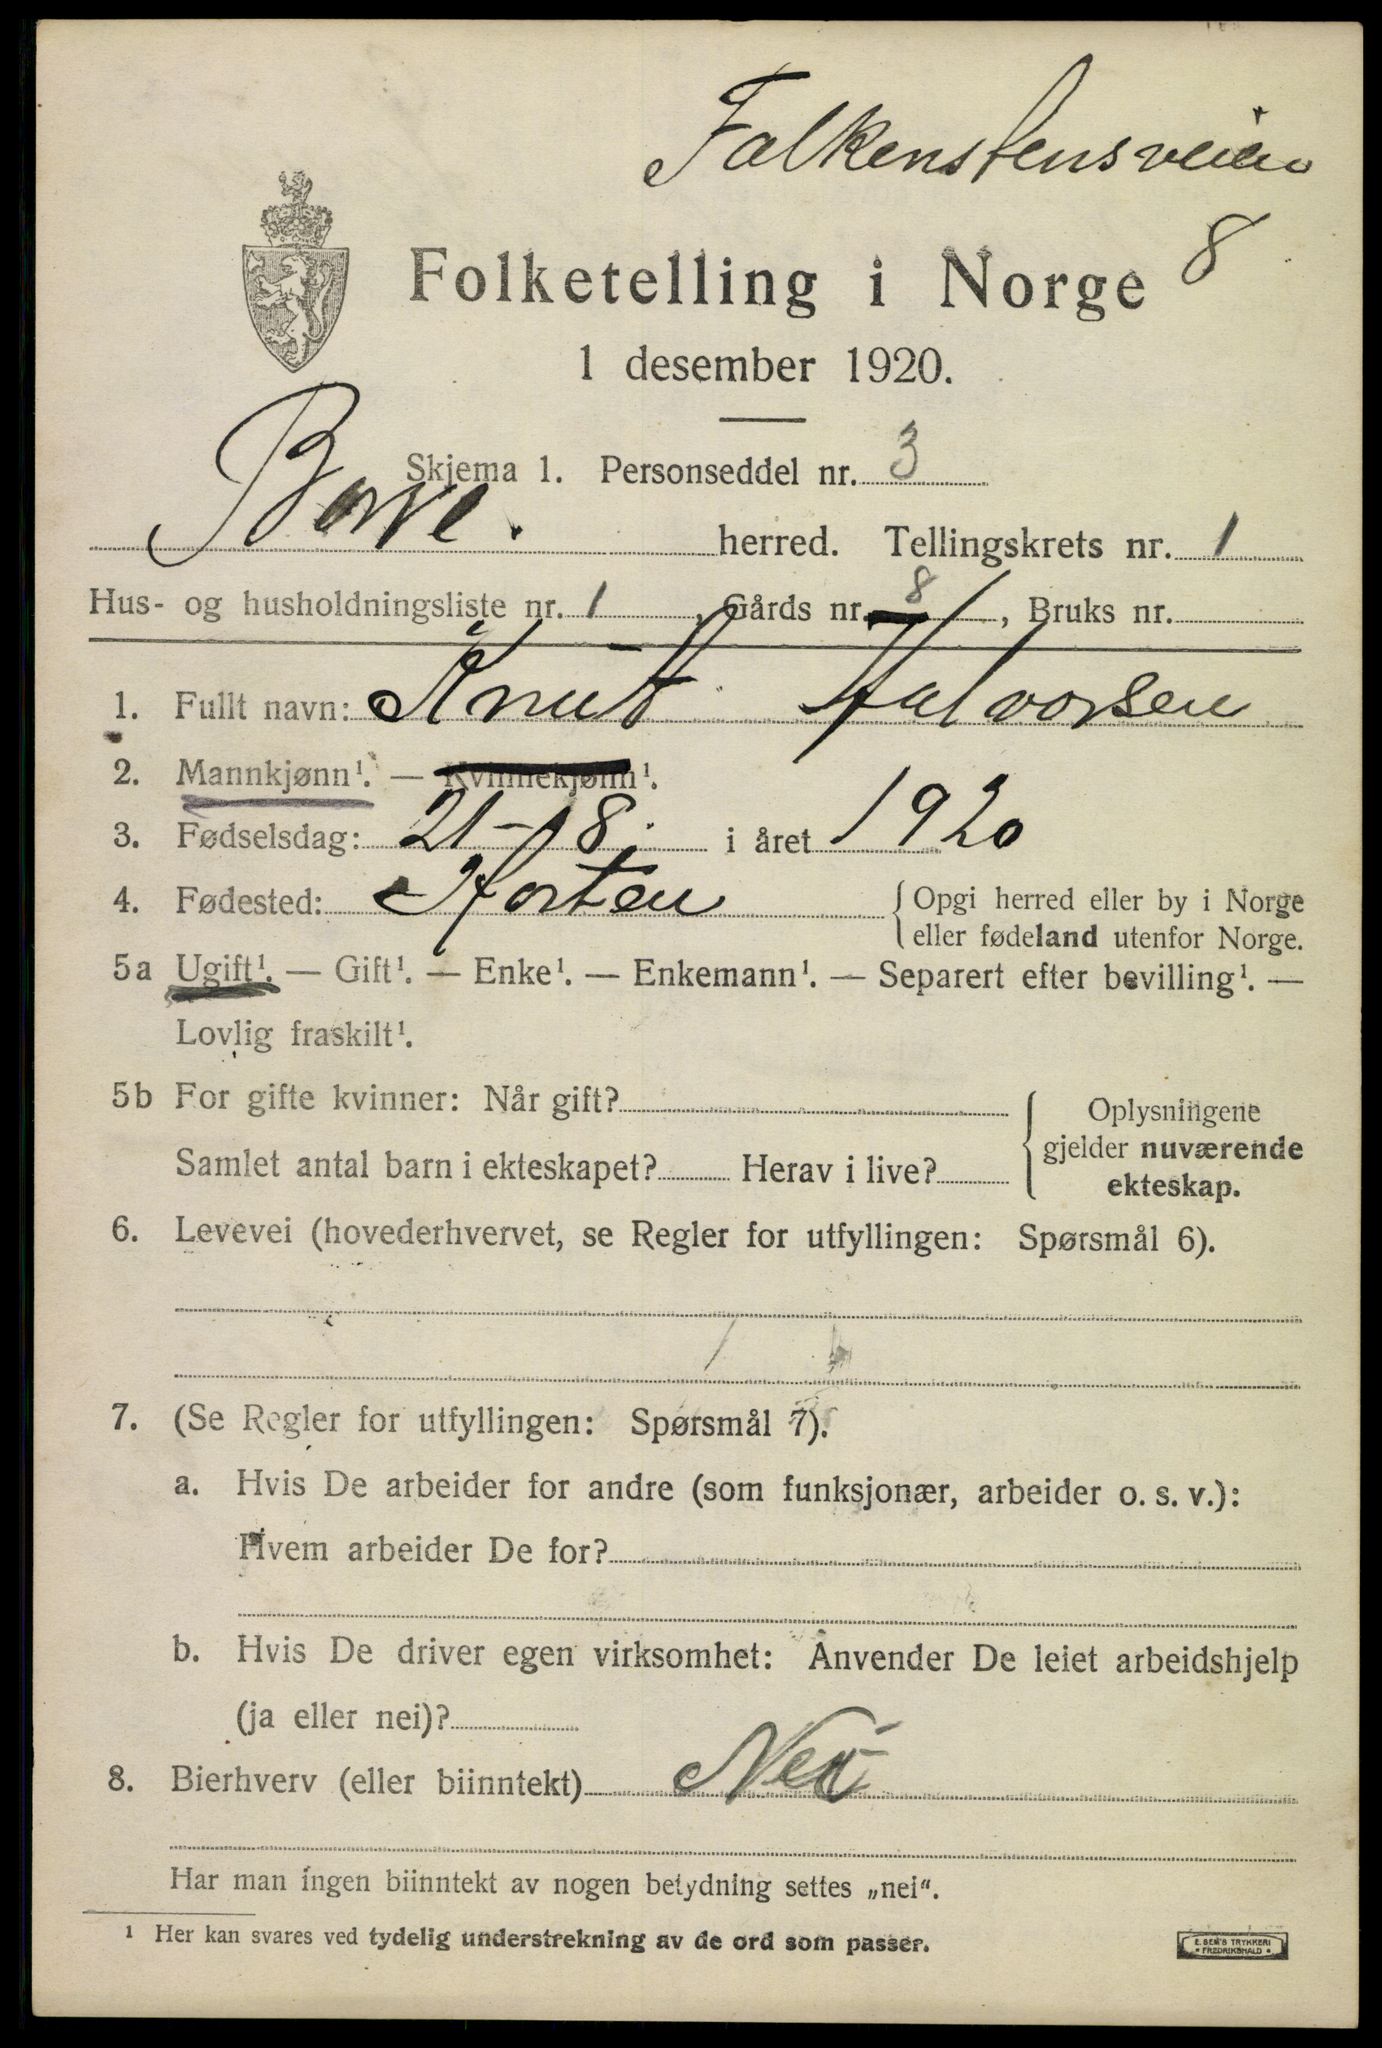 Falkenstensveien
8
Folketelling i Norge
1 desember 1920.
Skjema 1. Personseddel nr. 3
Borre. herred. Tellingskrets nr. 1
Hus- og husholdningsliste nr. 1, Gårds nr. 8, Bruks nr.
1. Fullt navn: Knut Halvorsen
2. Mannkjønn¹. — Kvinnekjønn¹.
3. Fødselsdag: 21-8. i året 1920
4. Fødested: Horten { Opgi herred eller by i Norge
eller fødeland utenfor Norge.
5a Ugift¹. — Gift¹. — Enke¹. — Enkemann¹. — Separert efter bevilling¹. —
Lovlig fraskilt¹.
5b For gifte kvinner: Når gift? { Oplysningene
gjelder nuværende
ekteskap.
Samlet antal barn i ekteskapet? Herav i live?
6. Levevei (hovederhvervet, se Regler for utfyllingen: Spørsmål 6).
7. (Se Regler for utfyllingen: Spørsmål 7).
a. Hvis De arbeider for andre (som funksjonær, arbeider o. s. v.):
Hvem arbeider De for?
b. Hvis De driver egen virksomhet: Anvender De leiet arbeidshjelp
(ja eller nei)?
8. Bierhverv (eller biinntekt) Nei
Har man ingen biinntekt av nogen betydning settes „nei“.
¹ Her kan svares ved tydelig understrekning av de ord som passer.
E. SEM'S TRYKKERI
FREDRIKSHALD